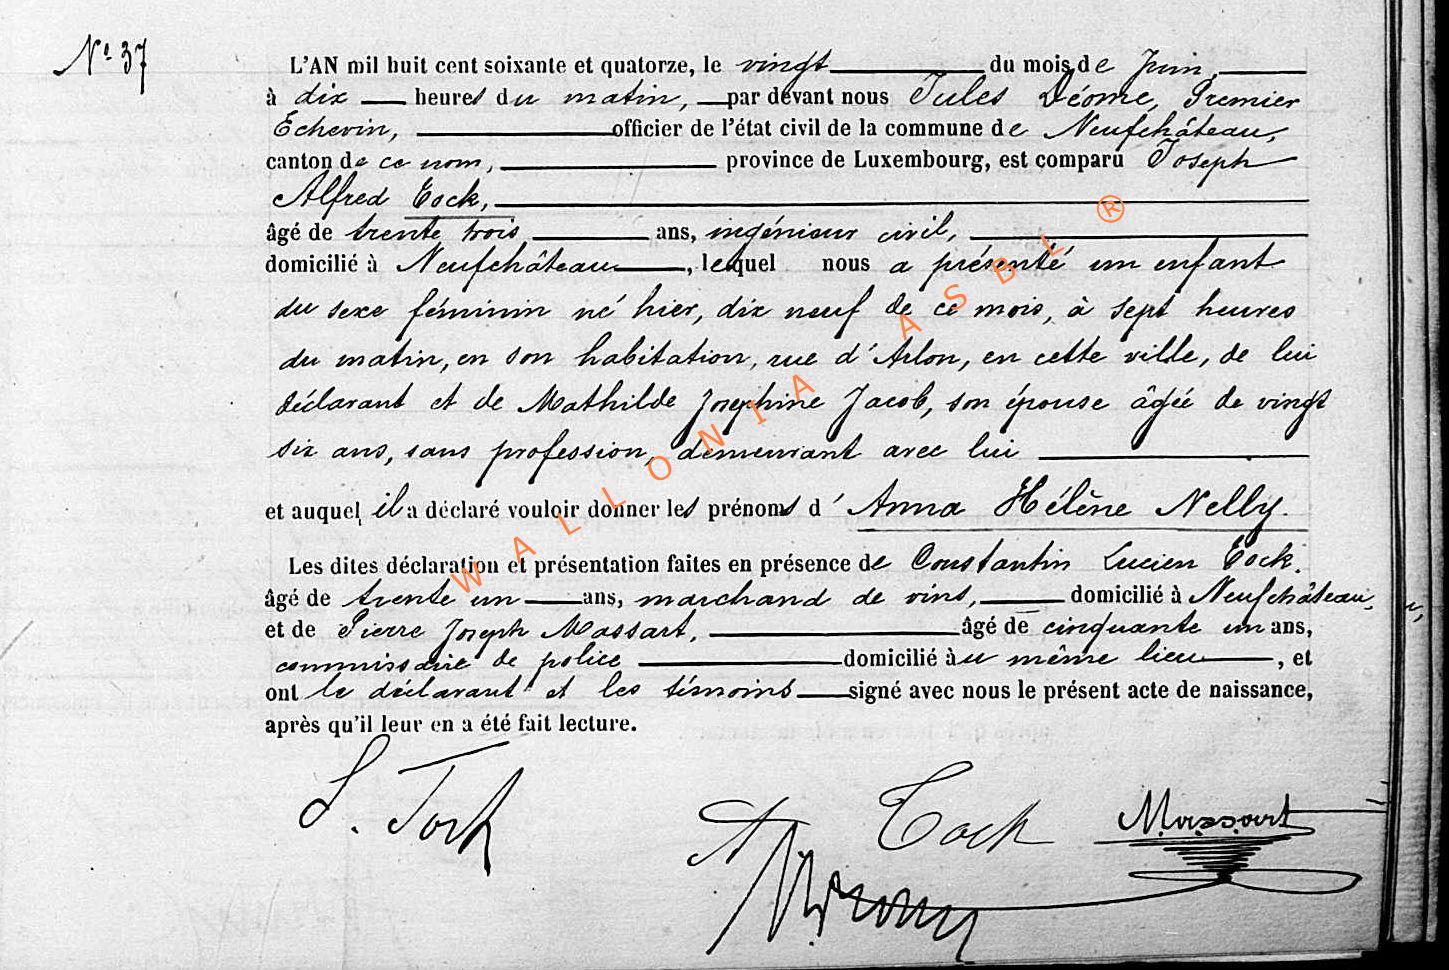 Nº 37
L'AN mil huit cent soixante et quatorze, le vingt du mois de Juin,
à dix heures du matin, par devant nous Jules Déome, Premier
Echevin, officier de l'état civil de la commune de Neufchâteau,
canton de ce nom, province de Luxembourg, est comparu Joseph
Alfred Tock,
âgé de trente trois ans, ingénieur civil,
domicilié à Neufchâteau, lequel nous a présenté un enfant
du sexe féminin né hier, dix neuf de ce mois, à sept heures
du matin, en son habitation, rue d'Arlon, en cette ville, de lui
déclarant et de Mathilde Josephine Jacob, son épouse âgée de vingt
six ans, sans profession, demeurant avec lui
et auquel il a déclaré vouloir donner les prénoms d'Anna Hélène Nelly.
Les dites déclaration et présentation faites en présence de Constantin Lucien Tock,
âgé de trente un ans, marchand de vins, domicilié à Neufchâteau,
et de Pierre Joseph Massart, âgé de cinquante un ans,
commissaire de police domicilié au même lieu, et
ont le déclarant et les témoins signé avec nous le présent acte de naissance,
après qu'il leur en a été fait lecture.
Tock
A Tock Massart
WALLONIA ASBL ®